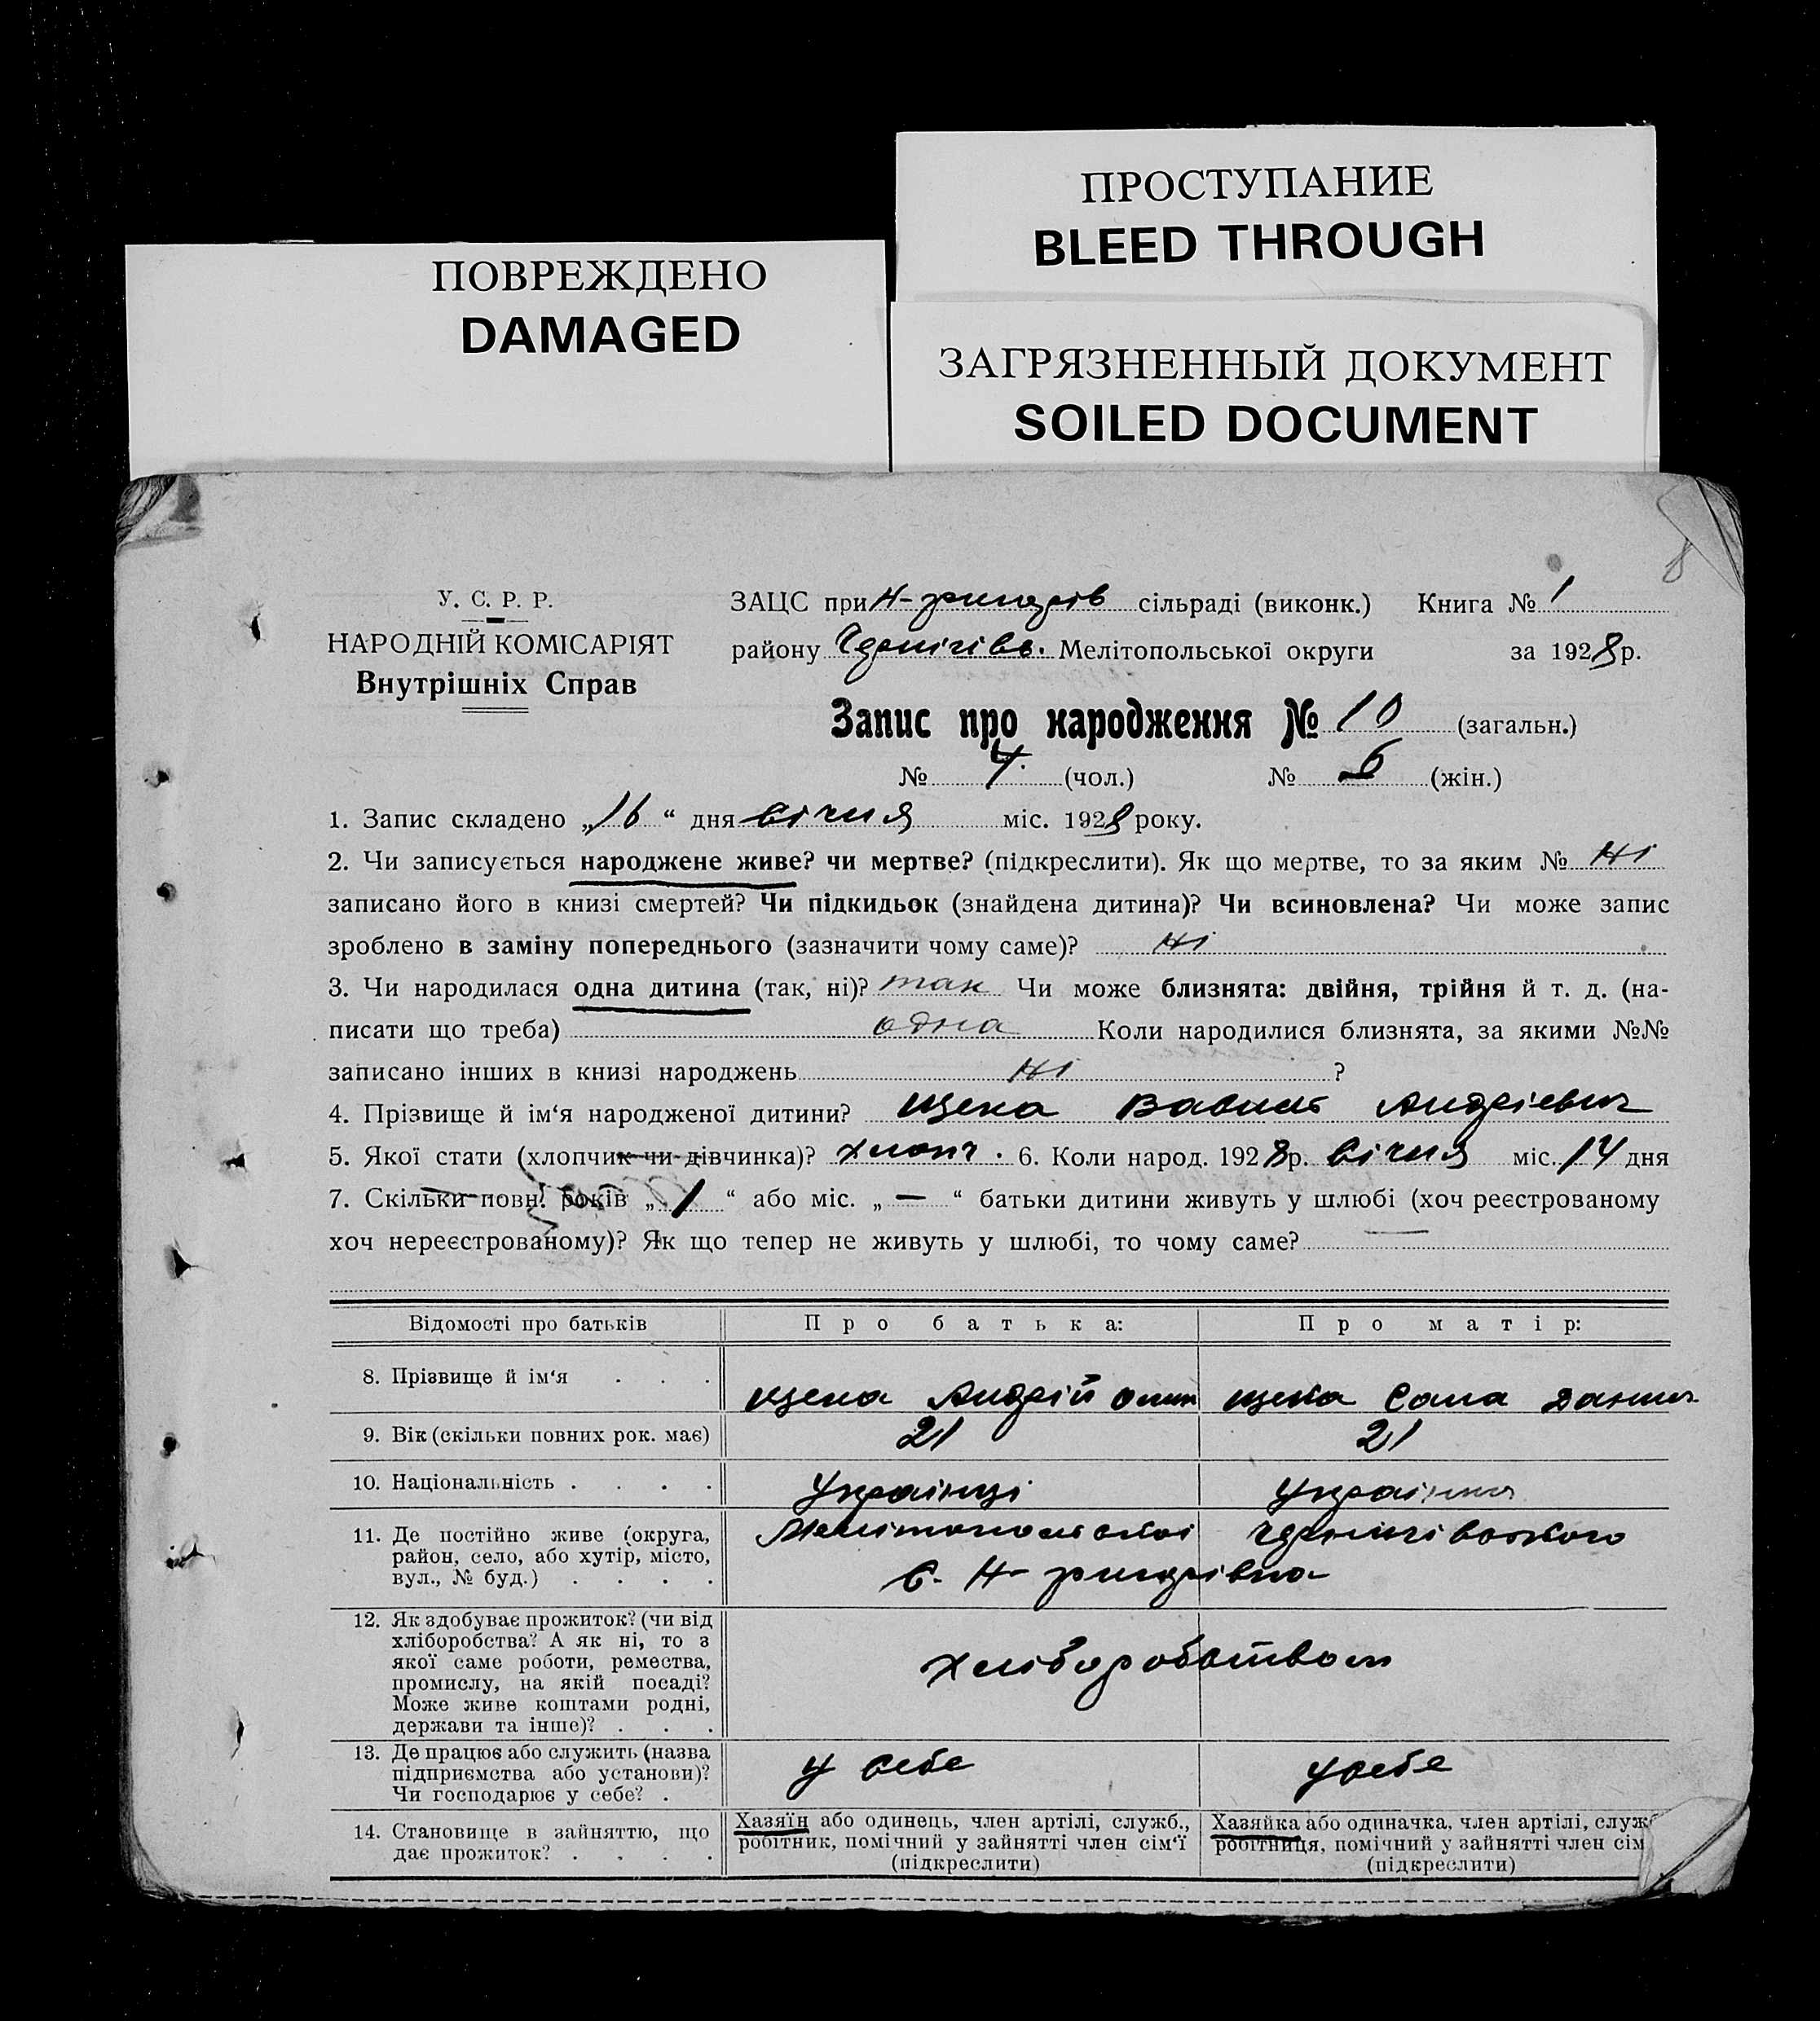 ПРОСТУПАНИЕ
BLEED THROUGH
ПОВРЕЖДЕНО
DAMAGED
ЗАГРЯЗНЕННЫЙ ДОКУМЕНТ
SOILED DOCUMENT
8
У. С. Р. Р.
НАРОДНІЙ КОМІСАРІЯТ
Внутрішніх Справ
ЗАЦС при сільраді (виконк.) Книга № 1
району Чернігівс. Мелітопольської округи за 1928 р.
Запис про народження № 10 (загальн.)
№ 4. (чол.) № 6 (жін.)
1. Запис складено „16“ дня січня міс. 1928 року.
2. Чи записується народжене живе? чи мертве? (підкреслити). Як що мертве, то за яким № ні
записано його в книзі смертей? Чи підкидьок (знайдена дитина)? Чи всиновлена? Чи може запис
зроблено в заміну попереднього (зазначити чому саме)? ні
3. Чи народилася одна дитина (так, ні)? так Чи може близнята: двійня, трійня й т. д. (на-
писати що треба) одна Коли народилися близнята, за якими №№
записано інших в книзі народжень ні ?
4. Прізвище й ім‘я народженої дитини? Щека Василь Андрієвич
5. Якої стати (хлопчик чи дівчинка)? хлопч. 6. Коли народ. 1928 р. січня міс. 14 дня
7. Скільки повн. років „1“ або міс. „—“ батьки дитини живуть у шлюбі (хоч реєстрованому
хоч нереєстрованому)? Як що тепер не живуть у шлюбі, то чому саме? —
Відомості про батьків Про батька: Про матір:
8. Прізвище й ім‘я . . . Щека Андрій Щека Данил.
9. Вік (скільки повних рок. має) 21 21
10. Національність . . . . Українці Україн
11. Де постійно живе (округа, Мелітопольскої Чернігівського
район, село, або хутір, місто, с. Н-
вул., № буд.) . . . .
12. Як здобуває прожиток? (чи від
хліборобства? А як ні, то з
якої саме роботи, ремества, хліборобством
промислу, на якій посаді?
Може живе коштами родні,
держави та інше)? . . .
13. Де працює або служить (назва у себе у себе
підприємства або установи)?
Чи господарює у себе? .
14. Становище в зайняттю, що Хазяїн або одинець, член артілі, служб., Хазяйка або одиначка, член артілі, служб
дає прожиток? . . . . робітник, помічний у зайнятті член сім‘ї робітниця, помічний у зайнятті член сім
(підкреслити) (підкреслити)